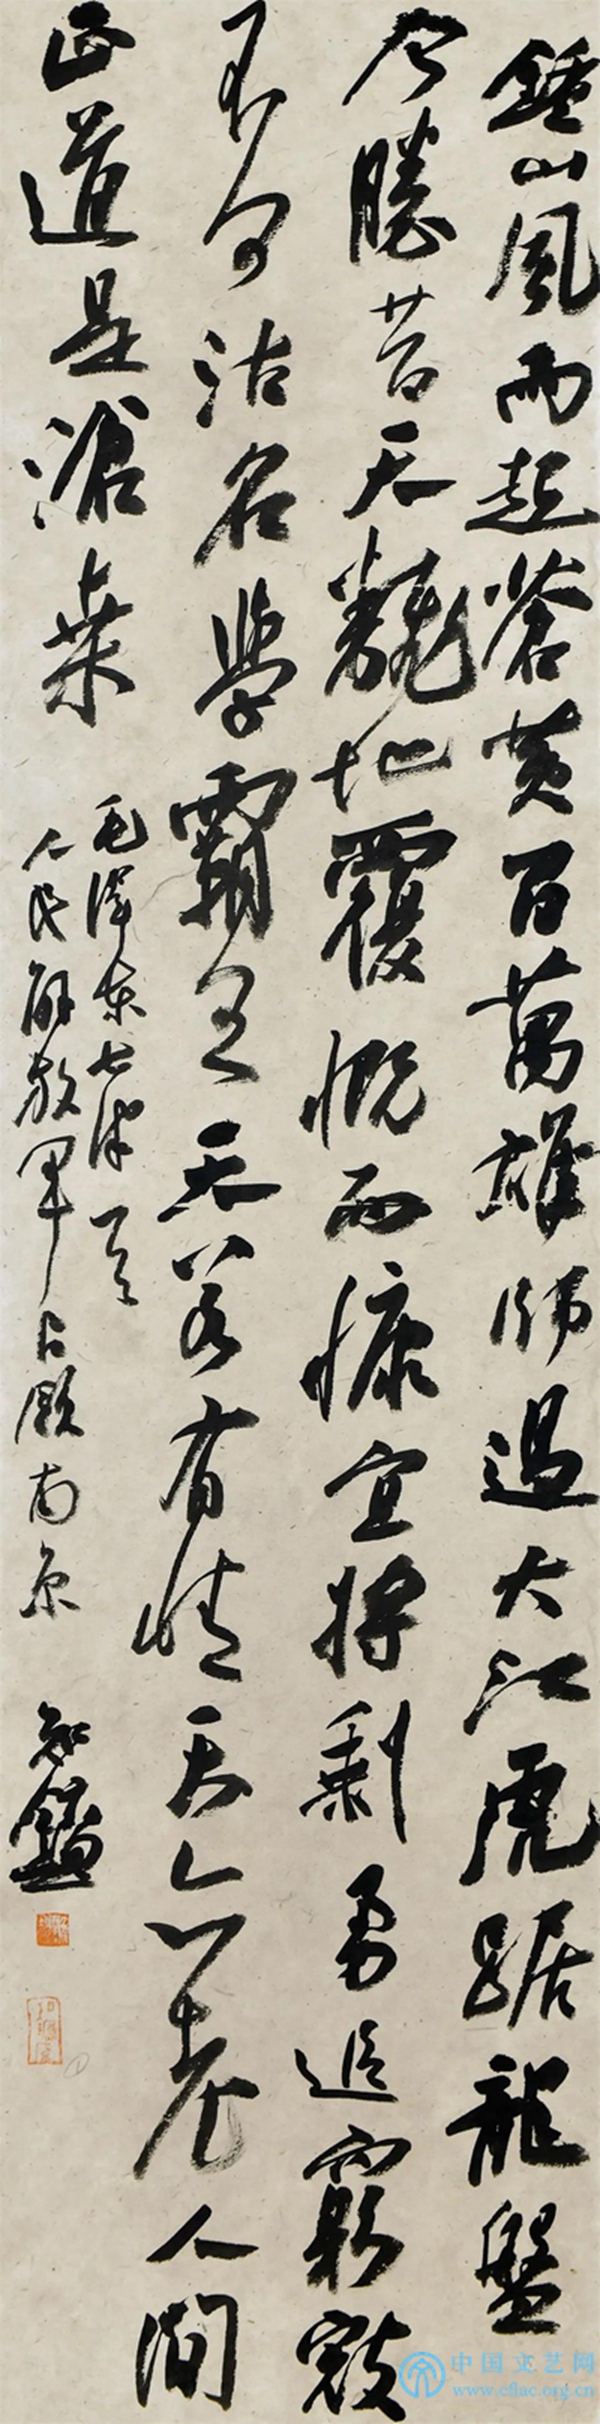 鍾山風雨起蒼黄百萬雄師過大江虎踞龍盤
今勝昔天翻地覆慨而慷宜將剩勇追窮寇
不可沽名學霸王天若有情天亦老人間
正道是滄桑
毛澤東七律一首
人民解放軍占領南京
知鐙
中国文艺网
www.cflac.org.cn